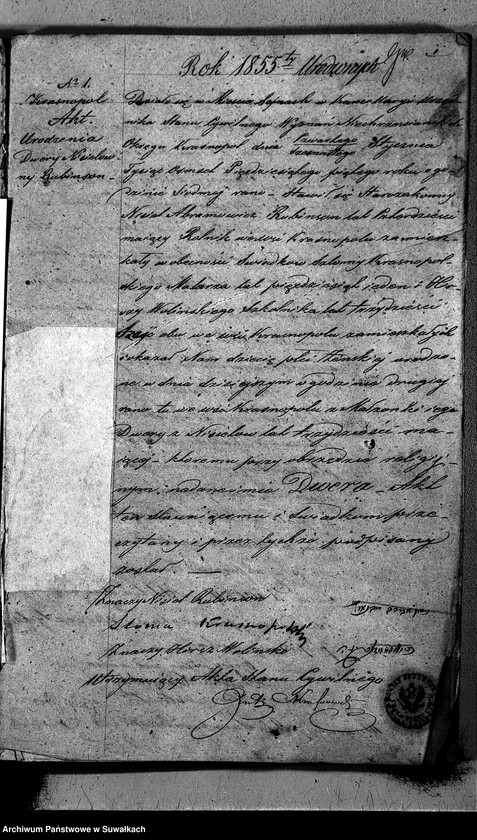 Rok 1855ty Urodzonych
№ 1.
Krasnopol
Akt
Urodzenia
Dwory Nisielow
ny Rubinson
Działo się w Mieście Sejnach w Kancellaryi Urzęd
nika Stanu Cywilnego Wyznań Niechrześciańskich
Okręgu Krasnopol dnia Czwartego Stycznia
Szesnastego
Tysiąc Osmset Pięćdziesiątego piątego roku o go
dzinie siódmej rano Stawił się Starozakonny
Nisiel Abramowicz Rubinson lat
mający Rolnik we wsi Krasnopolu zamiesz
kały w obecności Świadków Krasnopol
skiego Malarza lat pięćdziesiąt jeden i
Wolińskiego Szkolnika lat trzydzieści
obu we wsi Krasnopolu zamieszkałych
i okazał Nam dziecię płci żeńskiej urodzo
ne w dniu dzisiejszym o godzinie drugiej
rano tu we wsi Krasnopolu z Małżonki jego
Dwory z Nisielow lat trzydzieści ma
jącej któremu przy obrzędzie religij
nym nadano imie Dwera Akt
ten stawiącemu i Świadkom prze
czytany i przez tychże podpisany
został
Znaczy Nisiel Rubinson
Krasnopolski
Znaczy Woliński
Utrzymujący Akta Stanu Cywilnego
Archiwum Państwowe w Suwałkach